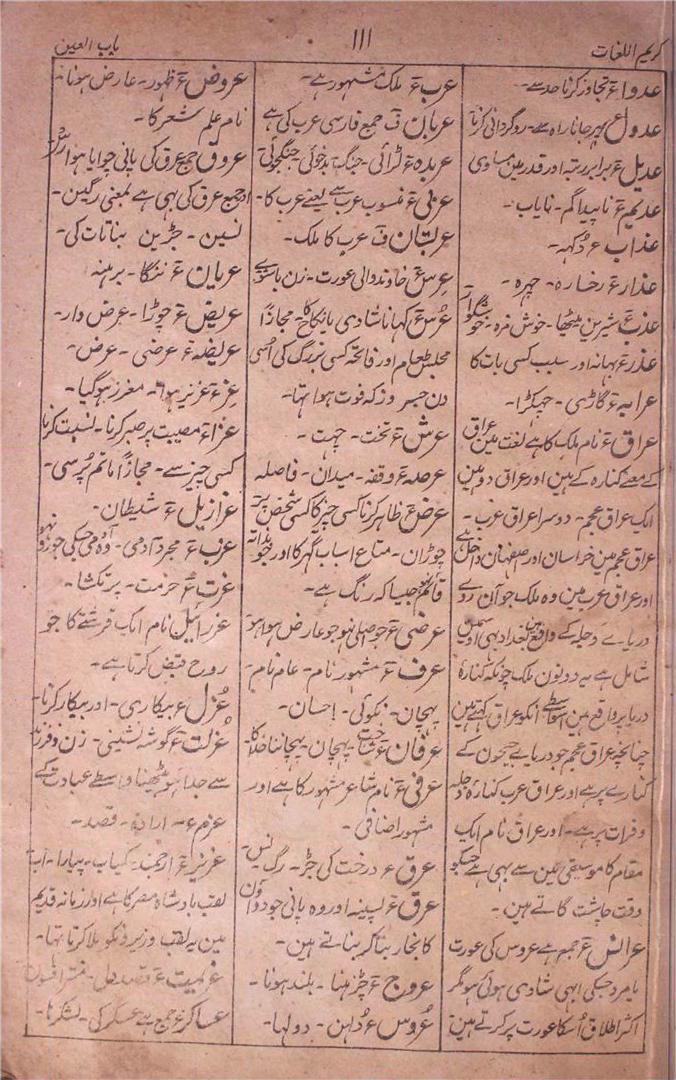 کریم اللغات
۱۱۱
باب العین
عدواء ع تجاوز کرنا حد سے۔
عدول ع پھر جانا راہ سے۔ روگردانی کرنا
عدیل ع برابر رتبہ اور قدر مین مساوی
عدیم ع ناپید اگم۔ نایاب۔
عذاب ع دکہہ۔
عذار ع رخسارہ۔ چہرہ۔
عذب ع شیرین میٹھا۔ خوش مزہ۔ خوشگوار
عذر ع بہانہ اور سبب کسی بات کا
عرابہ ع گاڑی۔ چہکڑا۔
عراق ع نام ملک کا ہے لغت مین عراق
کے معنے کنارہ کے ہین اور عراق دو ہین
ایک عراق عجم۔ دوسرا عراق عرب۔
عراق عجم مین خراسان اور اصفہان داخل ہے
اور عراق عرب مین وہ ملک جو آن روے
دریاے دجلہ کے واقع ہین بغداد بہی اوسمین
شامل ہے یہ دونون ملک چونکہ کنارہ
دریا پر واقع ہین اسواسطے انکو عراق کہتے ہین
چنانچہ عراق عجم جو دریاے جیحون کے
کنارے پر ہے اور عراق عرب کنارہ دجلہ
و فرات پر ہے۔ اور عراق نام ایک
مقام کا موسیقی مین سے بہی ہے جسکو
وقت چاشت گاتے ہین۔
عرائس ع جمع ہے عروس کی عورت
یا مرد جسکی ابہی شادی ہوئی ہو مگر
اکثر اطلاق اُسکا عورت پر کرتے ہین
عرب ع ملک مشہور ہے۔
عربان ف جمع فارسی عرب کی ہے
عربدہ ع لڑائی۔ جنگ۔ بدخوئی۔ جنگجوئی
عربی ع منسوب عرب سے یعنے عرب کا۔
عربستان ف عرب کا ملک۔
عرس ع خاوند والی عورت۔ زن باشوے
عُرس ع کہانا شادی یا نکاح کا۔ مجازاً
مجلس طعام اور فاتحہ کسی بزرگ کی اُسی
دن جس روز کہ فوت ہوا تہا۔
عرش ع تخت۔ چہت۔
عرصہ ع وقفہ۔ میدان۔ فاصلہ
عرض ع ظاہر کرنا کسی چیز کا کسی شخص پر
چوڑان۔ متاع اسباب گہر کا اور جو بذاتہ
قائم نہو جیسا کہ رنگ ہے۔
عرضی ع جو اصلی نہو جو عارض ہوا ہو
عرف ع مشہور نام۔ عام نام
پہچان۔ نکوئی۔ احسان۔
عرفان ع شناخت۔ پہچان۔ پہچاننا خدا کا
عرفی ع نام شاعر مشہور کا ہے اور
مشہور اضافی۔
عرق ع درخت کی جڑ۔ رگ۔ نس۔
عرق ع پسینہ اور وہ پانی جو دواؤن
کا بخار بنا کر بناتے ہین۔
عروج ع چڑہنا۔ بلند ہونا۔
عُروس ع دُلہن۔ دولہا۔
عروض ع ظہور۔ عارض ہونا۔
نام علم شعر کا۔
عروق جمع عرق کی پانی چوایا ہوا
اور جمع عرق کی بہی ہے بمعنی رگین۔
نسین۔ جڑین نباتات کی۔
عریان ع ننگا۔ برہنہ
عریض ع چوڑا۔ عرض دار۔
عریضہ ع عرضی۔ عرض۔
عز ع عزیز ہوا۔ معزز ہوگیا۔
عزاء ع مصیبت پر صبر کرنا۔ نسبت کرنا
کسی چیز سے۔ مجازاً ماتم پرسی۔
عزازیل ع شیطان۔
عزب ع مجرد آدمی۔ وہ آدمی جسکی جورو نہو
عزت ع حرمت۔
عزرائیل نام ایک فرشتے کا جو
روح قبض کرتا ہے۔
عُزل ع بیکاری۔ اور بیکار کرنا۔
عُزلت ع گوشہ نشینی۔ زن و فرزند
سے جدا ہو بیٹھنا واسطے عبادت کے
عزم ع۔ ارادہ۔ قصد۔
عزیز ع ارجمند۔ کمیاب۔ پیارا۔
لقب بادشاہ مصر کا ہے اور زمانہ قدیم
مین یہ لقب وزیر ذیکو بلا کرتا تہا۔
عزیمت ع قصد دل۔ منتر افسون
عساکر ع جمع ہے عسکر کی۔ لشکرہا۔